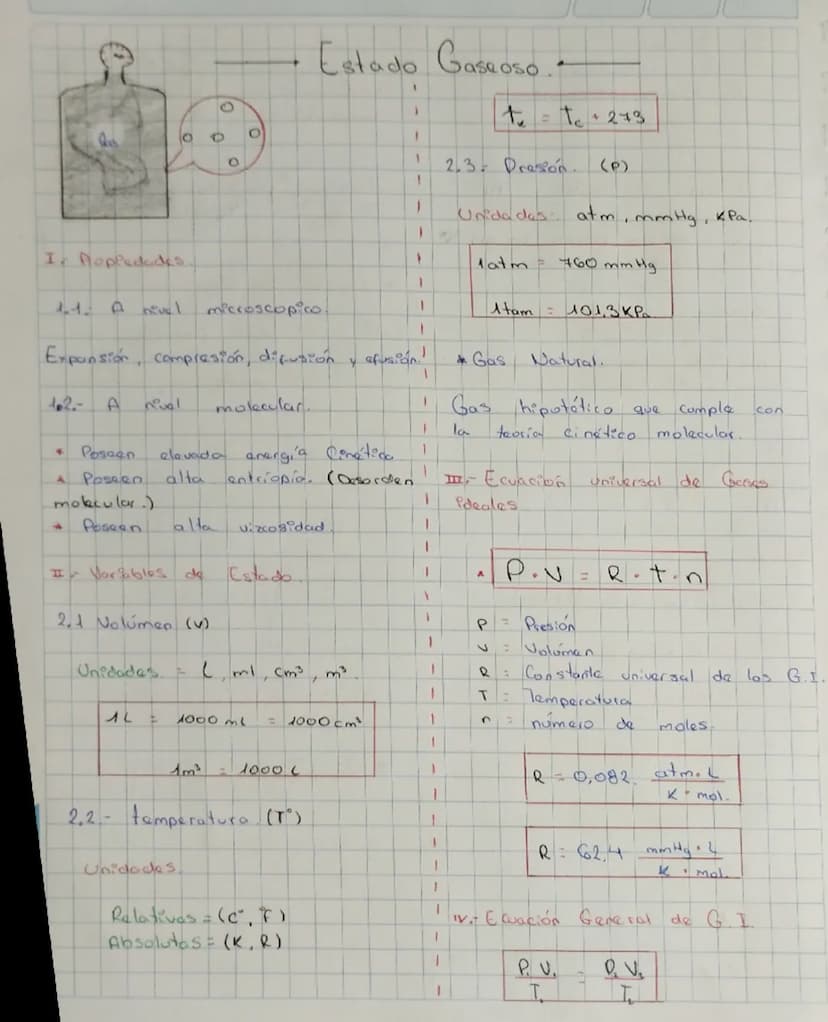 Estado Gaseoso.
Gas
I.- Propiedades.
1.1.- A nivel microscopico.
Expansión, compresión, dicusión y efusión.
1.2.- A nivel molecular.
* Poseen elevada energía Cinética
* Poseen alta entriopía. (Desorden
molecular.)
* Poseen alta vizcosidad.
II.- Variables de Estado.
2.1 Volúmen (V)
Unidades = L, ml, cm³, m³.
1L = 1000 ml = 1000 cm³
1m³ = 1000 L
2.2.- temperatura (T°)
Unidades.
Relativas = (C°, F)
Absolutas = (K, R)
tk = tc + 273
2.3.- Presión. (P)
Unidades: atm, mmHg, KPa.
1atm = 760 mmHg
1tam = 101,3 KPa
* Gas Natural.
Gas hipotético que comple con
la teoría cinético molecular.
III.- Ecuación universal de Gases
Ideales
* P . V = R . t . n
P = Presión
V = Volúmen
R = Constante universal de los G.I.
T = Temperatura
n = número de moles.
R = 0,082 atm.L / K . mol.
R = 62,4 mmHg . L / K . mol
IV.- Ecuación General de G.I
P₁ V₁ / T₁ = P₂ V₂ / T₂